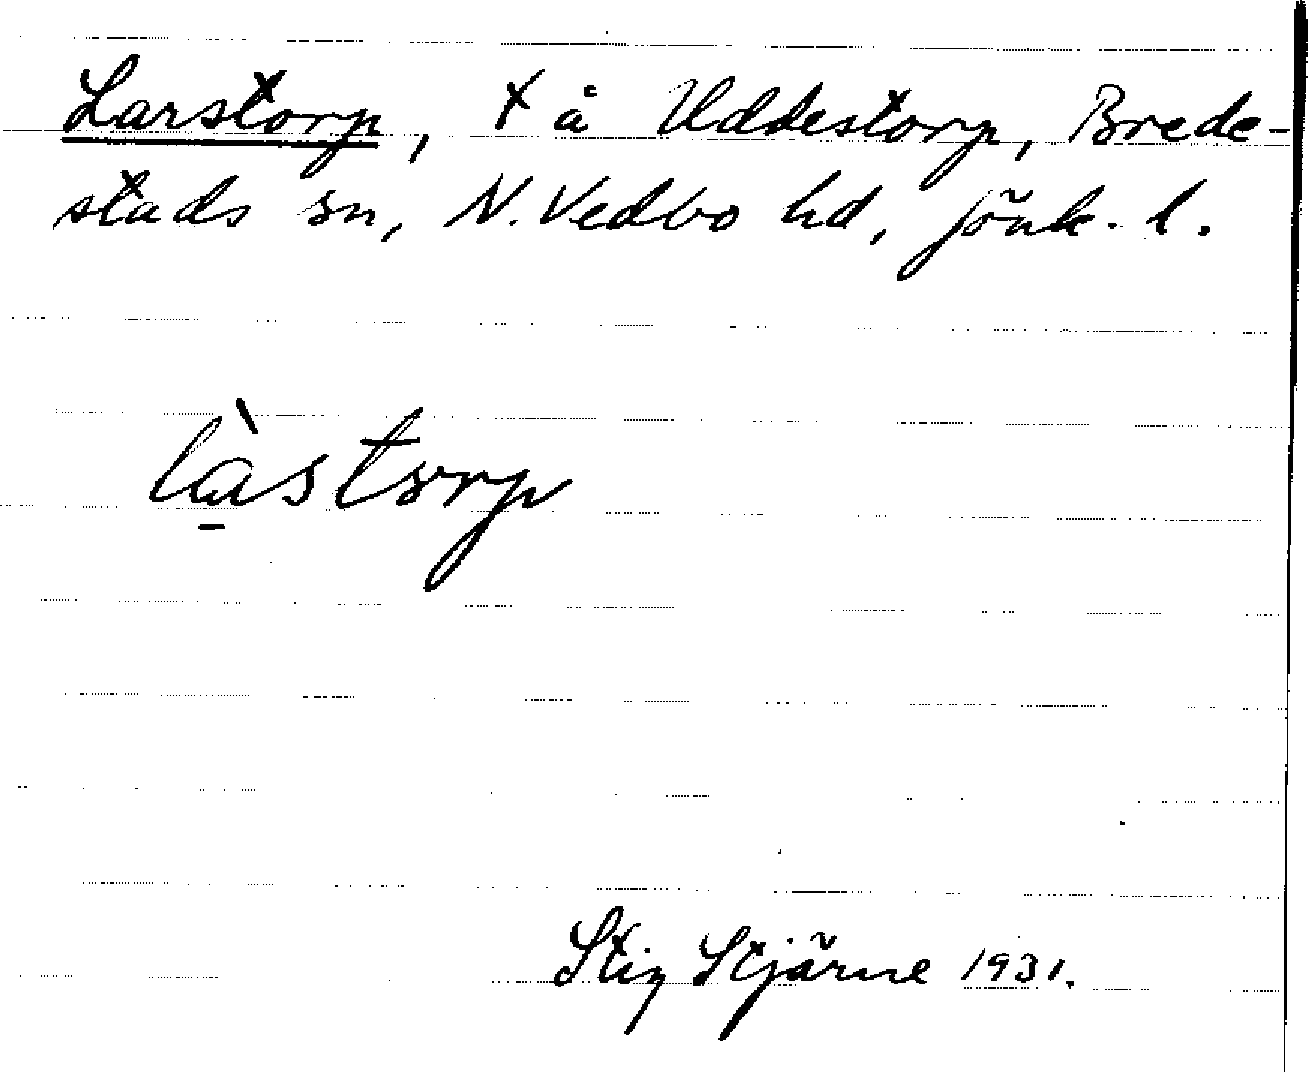 Larstorp, t å Uddestorp, Brede-
stads sn, N. Vedbo hd, Jönk. l.
là̱storp
Stig Stjärne 1931.